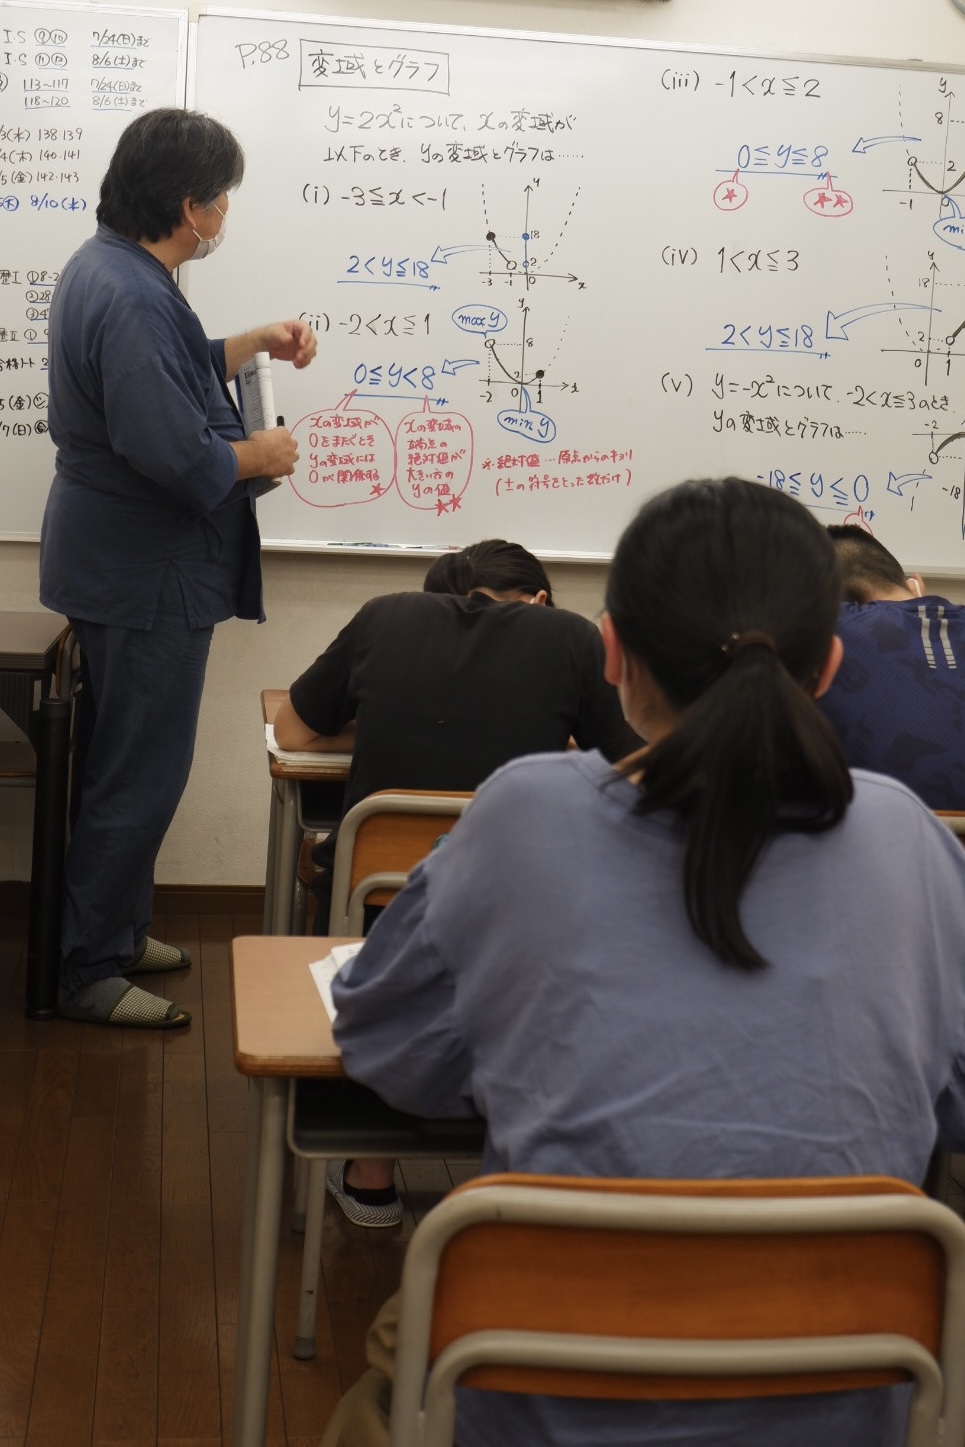 I.S ⑨⑩ 7/24(日)まで
I.S ⑪⑫ 8/6(土)まで
113~117 7/24(日)まで
118~120 8/6(土)まで
/3(水) 138.139
/4(木) 140.141
/5(金) 142.143
8/10(水)
P.88
変域とグラフ
y=2x²について、xの変域が
以下のとき、yの変域とグラフは……
(i) -3≦x<-1
2<y≦18
18
2
-3 -1 0 x
y
(ii) -2<x≦1
max y
0≦y<8
y
8
2
-2 0 1 x
min y
xの変域が
0をまたぐとき
yの変域には
0が関係する
★
xの変域の
端点の
絶対値が
大きい方の
yの値
★★
※絶対値…原点からのキョリ
(±の符号をとった数だけ)
(iii) -1<x≦2
0≦y≦8
★ ★★
y
8
2
-1 0
(iv) 1<x≦3
2<y≦18
y
18
2
0 1
(v) y=-x²について、-2<x≦3のとき、
yの変域とグラフは……
-18≦y≦0
-2
-18